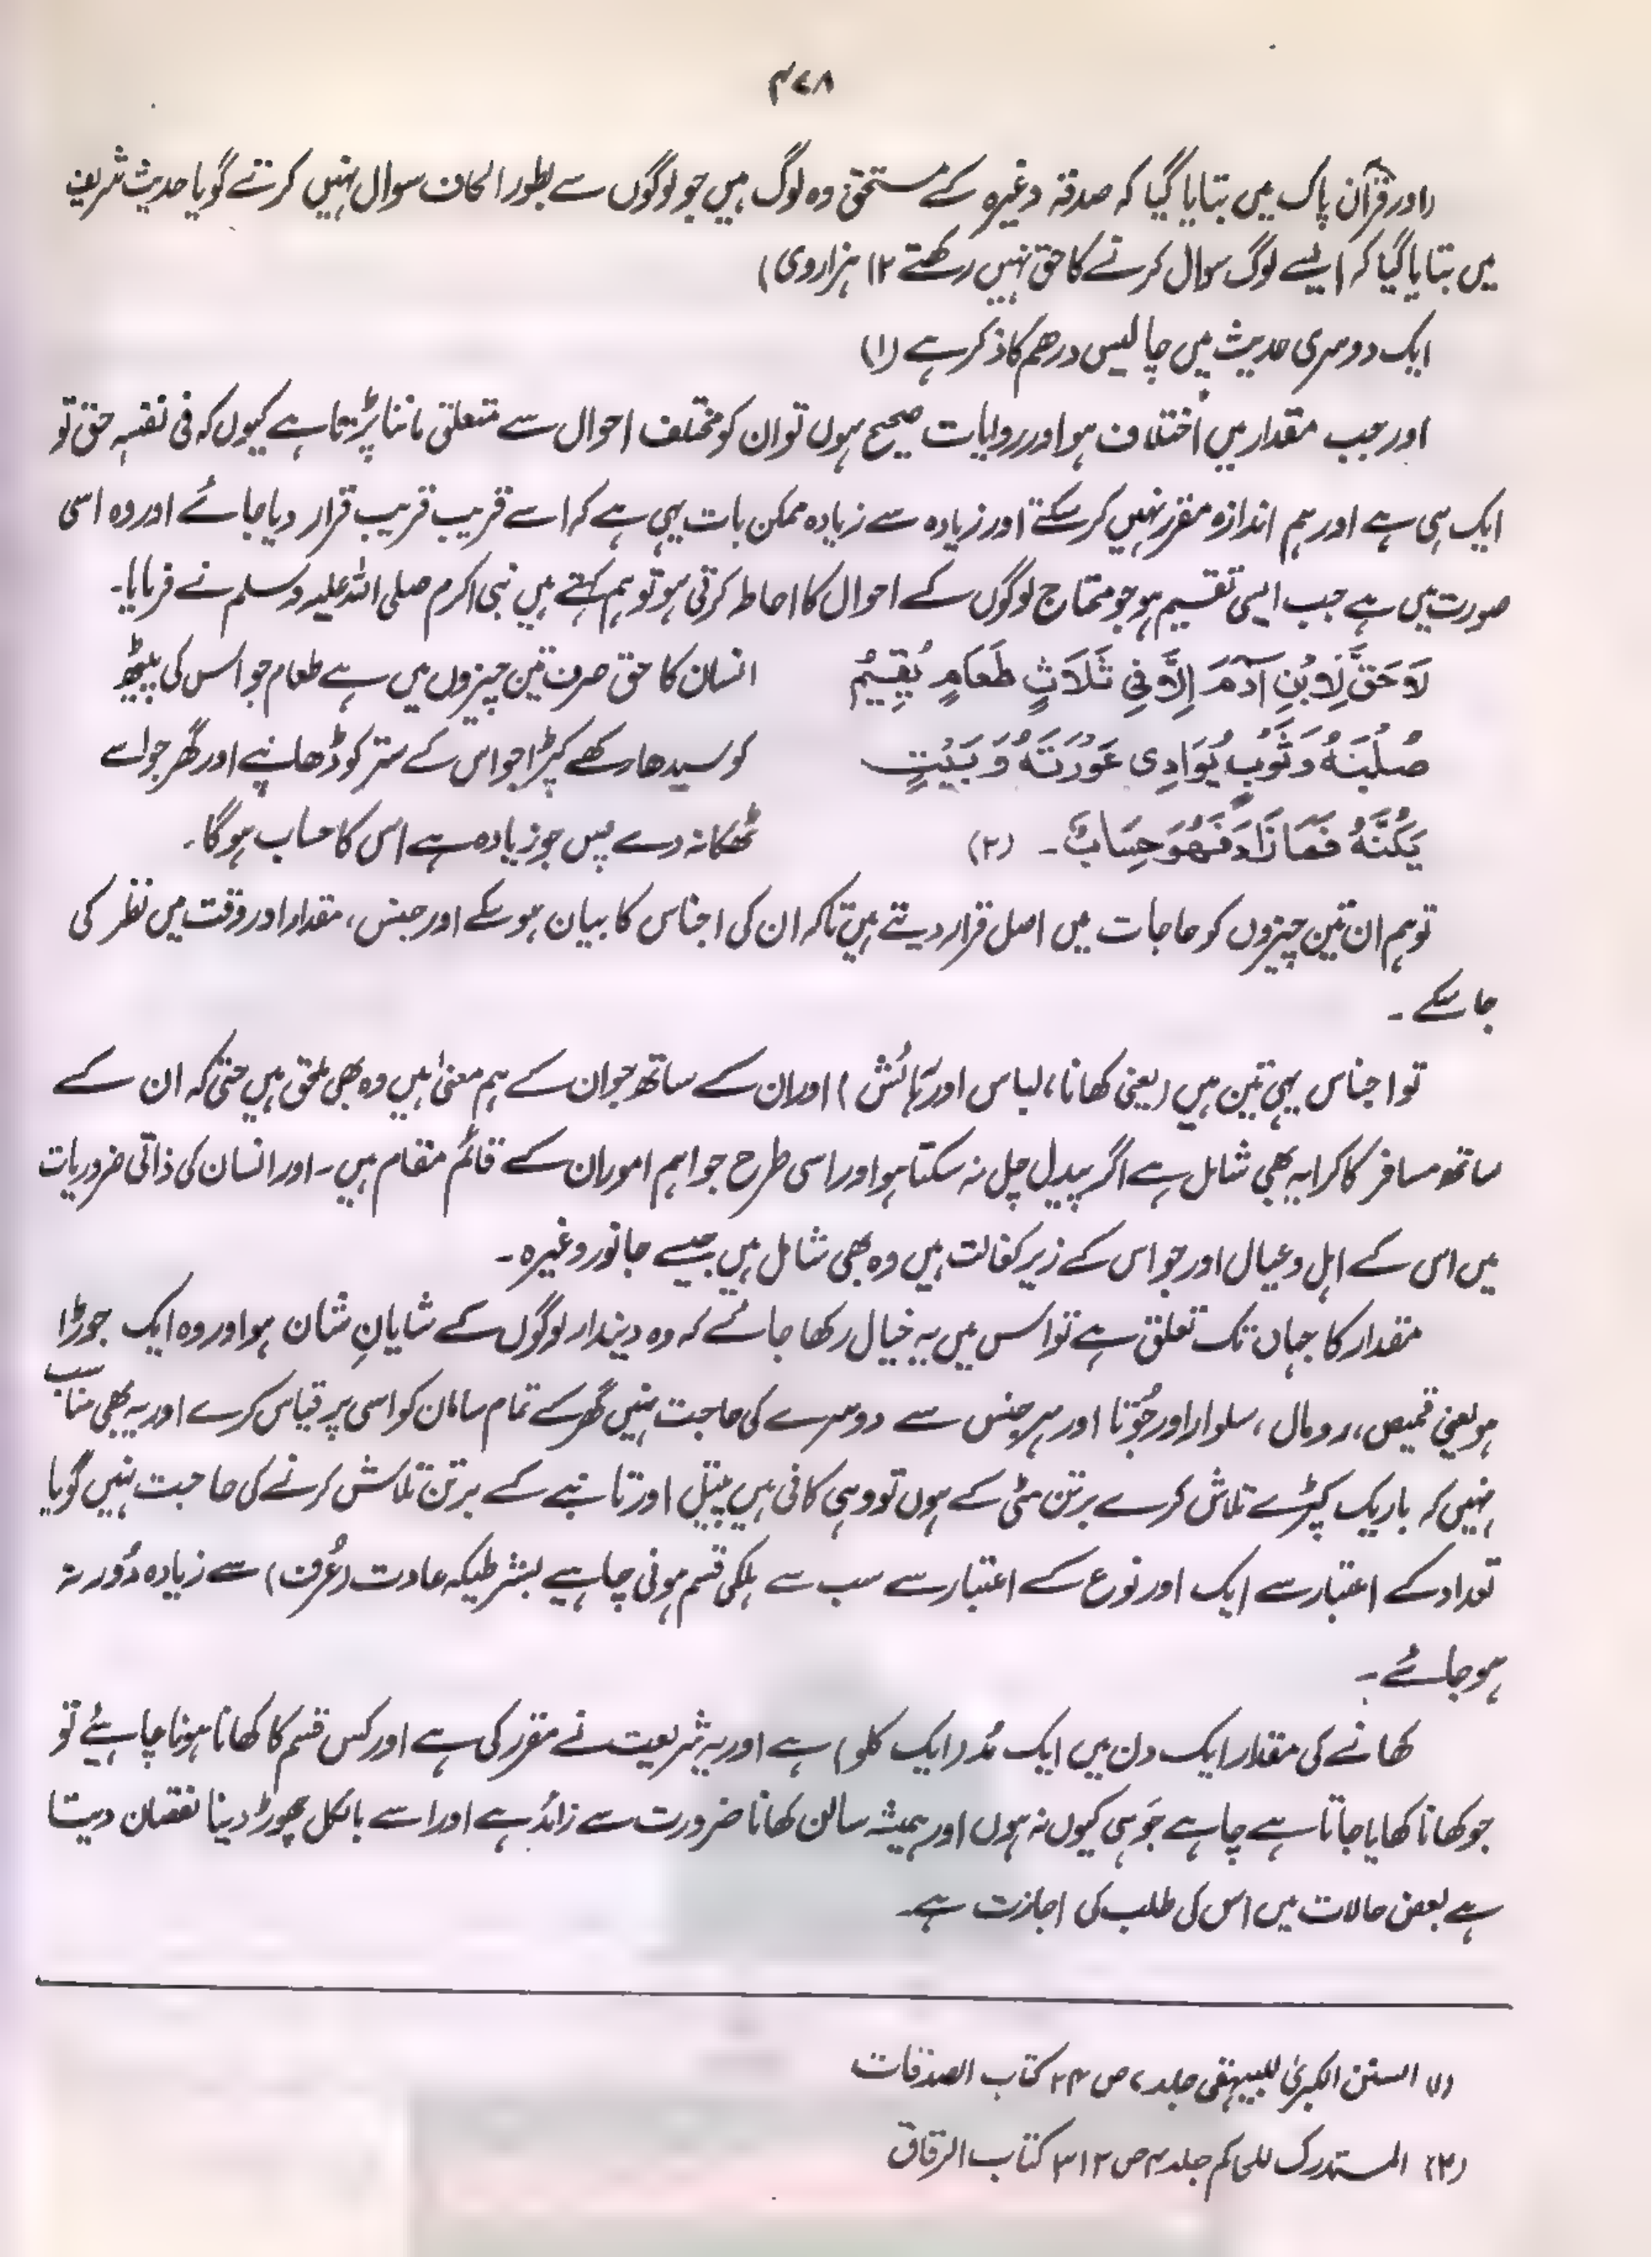 ۴۷۸
(اور قرآن پاک میں بتایا گیا کہ صدقہ وغیرہ کے مستحق وہ لوگ ہیں جو لوگوں سے بطور الحاف سوال نہیں کرتے گویا حدیث شریف
میں بتایا گیا کہ ایسے لوگ سوال کرنے کا حق نہیں رکھتے ۱۲ ہزاروی)
ایک دوسری حدیث میں چالیس درھم کا ذکر ہے (۱)
اور جب مقدار میں اختلاف ہو اور روایات صحیح ہوں تو ان کو مختلف احوال سے متعلق ماننا پڑتا ہے کیوں کہ فی نفسہ حق تو
ایک ہی ہے اور ہم اندازہ مقرر نہیں کر سکتے اور زیادہ سے زیادہ ممکن بات یہی ہے کہ اسے قریب قریب قرار دیا جائے اور وہ اسی
صورت میں ہے جب ایسی تقسیم ہو جو محتاج لوگوں کے احوال کا احاطہ کرتی ہو تو ہم کہتے ہیں نبی اکرم صلی اللہ علیہ وسلم نے فرمایا۔
لَا حَقَّ لِابْنِ آدَمَ اِلَّا فِیْ ثَلَاثٍ طَعَامٍ یُقِیْمُ انسان کا حق صرف تین چیزوں میں ہے طعام جو اس کی پیٹھ
صُلْبَهٗ وَثَوْبٍ یُوَارِی عَوْرَتَهٗ وَبَیْتٍ کو سیدھا رکھے کپڑا جو اس کے ستر کو ڈھانپے اور گھر جو اسے
یَکُنُّهٗ فَمَا زَادَ فَهُوَ حِسَابٌ۔ (۲) ٹھکانہ دے پس جو زیادہ ہے اس کا حساب ہوگا۔
تو ہم ان تین چیزوں کو حاجات میں اصل قرار دیتے ہیں تاکہ ان کی اجناس کا بیان ہو سکے اور جنس، مقدار اور وقت میں نظر کی
جا سکے۔
تو اجناس یہی تین ہیں (یعنی کھانا، لباس اور رہائش) اور ان کے ساتھ جو ان کے ہم معنیٰ ہیں وہ بھی ملحق ہیں حتیٰ کہ ان کے
ساتھ مسافر کا کرایہ بھی شامل ہے اگر پیدل چل نہ سکتا ہو اور اسی طرح جو اہم امور ان کے قائم مقام ہیں۔ اور انسان کی ذاتی ضروریات
میں اس کے اہل و عیال اور جو اس کے زیر کفالت ہیں وہ بھی شامل ہیں جیسے جانور وغیرہ۔
مقدار کا جہاں تک تعلق ہے تو اس میں یہ خیال رکھا جائے کہ وہ دیندار لوگوں کے شایانِ شان ہو اور وہ ایک جوڑا
ہو یعنی قمیص، رومال، سلوار اور جُوتا اور ہر جنس سے دوسرے کی حاجت نہیں گھر کے تمام سامان کو اسی پر قیاس کرے اور یہ بھی مناسب
نہیں کہ باریک کپڑے تلاش کرے برتن مٹی کے ہوں تو وہی کافی ہیں پیتل اور تانبے کے برتن تلاش کرنے کی حاجت نہیں گویا
تعداد کے اعتبار سے ایک اور نوع کے اعتبار سے سب سے ہلکی قسم ہونی چاہیے بشرطیکہ عادت (عُرف) سے زیادہ دُور نہ
ہو جائے۔
کھانے کی مقدار ایک دن میں ایک مُد (ایک کلو) ہے اور یہ شریعت نے مقرر کی ہے اور کس قسم کا کھانا ہونا چاہیئے تو
جو کھانا کھایا جاتا ہے چاہے جَو ہی کیوں نہ ہوں اور ہمیشہ سالن کھانا ضرورت سے زائد ہے اور اسے بالکل چھوڑ دینا نقصان دیتا
ہے بعض حالات میں اس کی طلب کی اجازت ہے۔
(۱) السنن الکبریٰ للبیہقی جلد ۷ ص ۲۴ کتاب الصدقات
(۲) المستدرک للحاکم جلد ۴ ص ۳۱۲ کتاب الرقاق